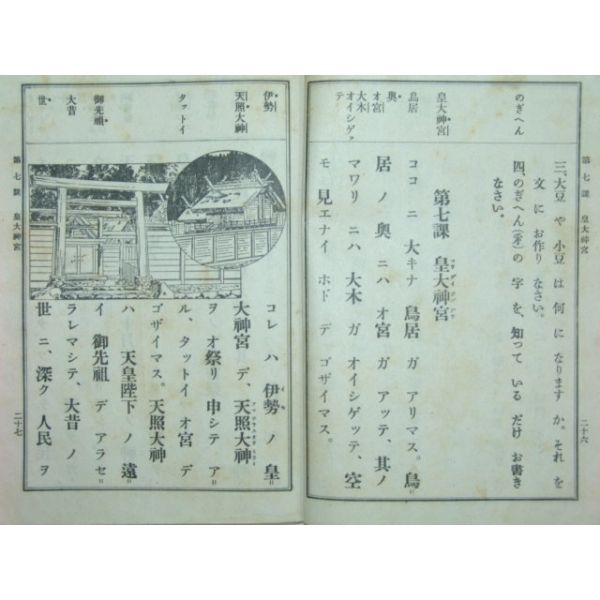 のぎへん
皇大神宮
鳥居
奥
オ宮
大木
オイシゲッテ
三、大豆 や 小豆 は 何 に なります か。それ を
文 に お作り なさい。
四、のぎへん(禾) の 字 を、知って いる だけ お書き
なさい。
第七課 皇大神宮
ココ ニ 大キナ 鳥居 ガ アリマス。鳥
居 ノ 奥 ニハ オ宮 ガ アッテ、其ノ
マワリ ニハ 大木 ガ オイシゲッテ、空
モ 見エナイ ホド デ ゴザイマス。
第七課 皇大神宮
二十六
伊勢
天照大神
タットイ
御先祖
大昔
世
コレ ハ 伊勢 ノ 皇
大神宮 デ、天照大神
ヲ オ祭リ 申シテ ア
ル、タットイ オ宮 デ
ゴザイマス。天照大神
ハ 天皇陛下 ノ 遠
イ 御先祖 デ アラセ
ラレマシテ、大昔 ノ
世 ニ、深ク 人民 ヲ
第七課 皇大神宮
二十七